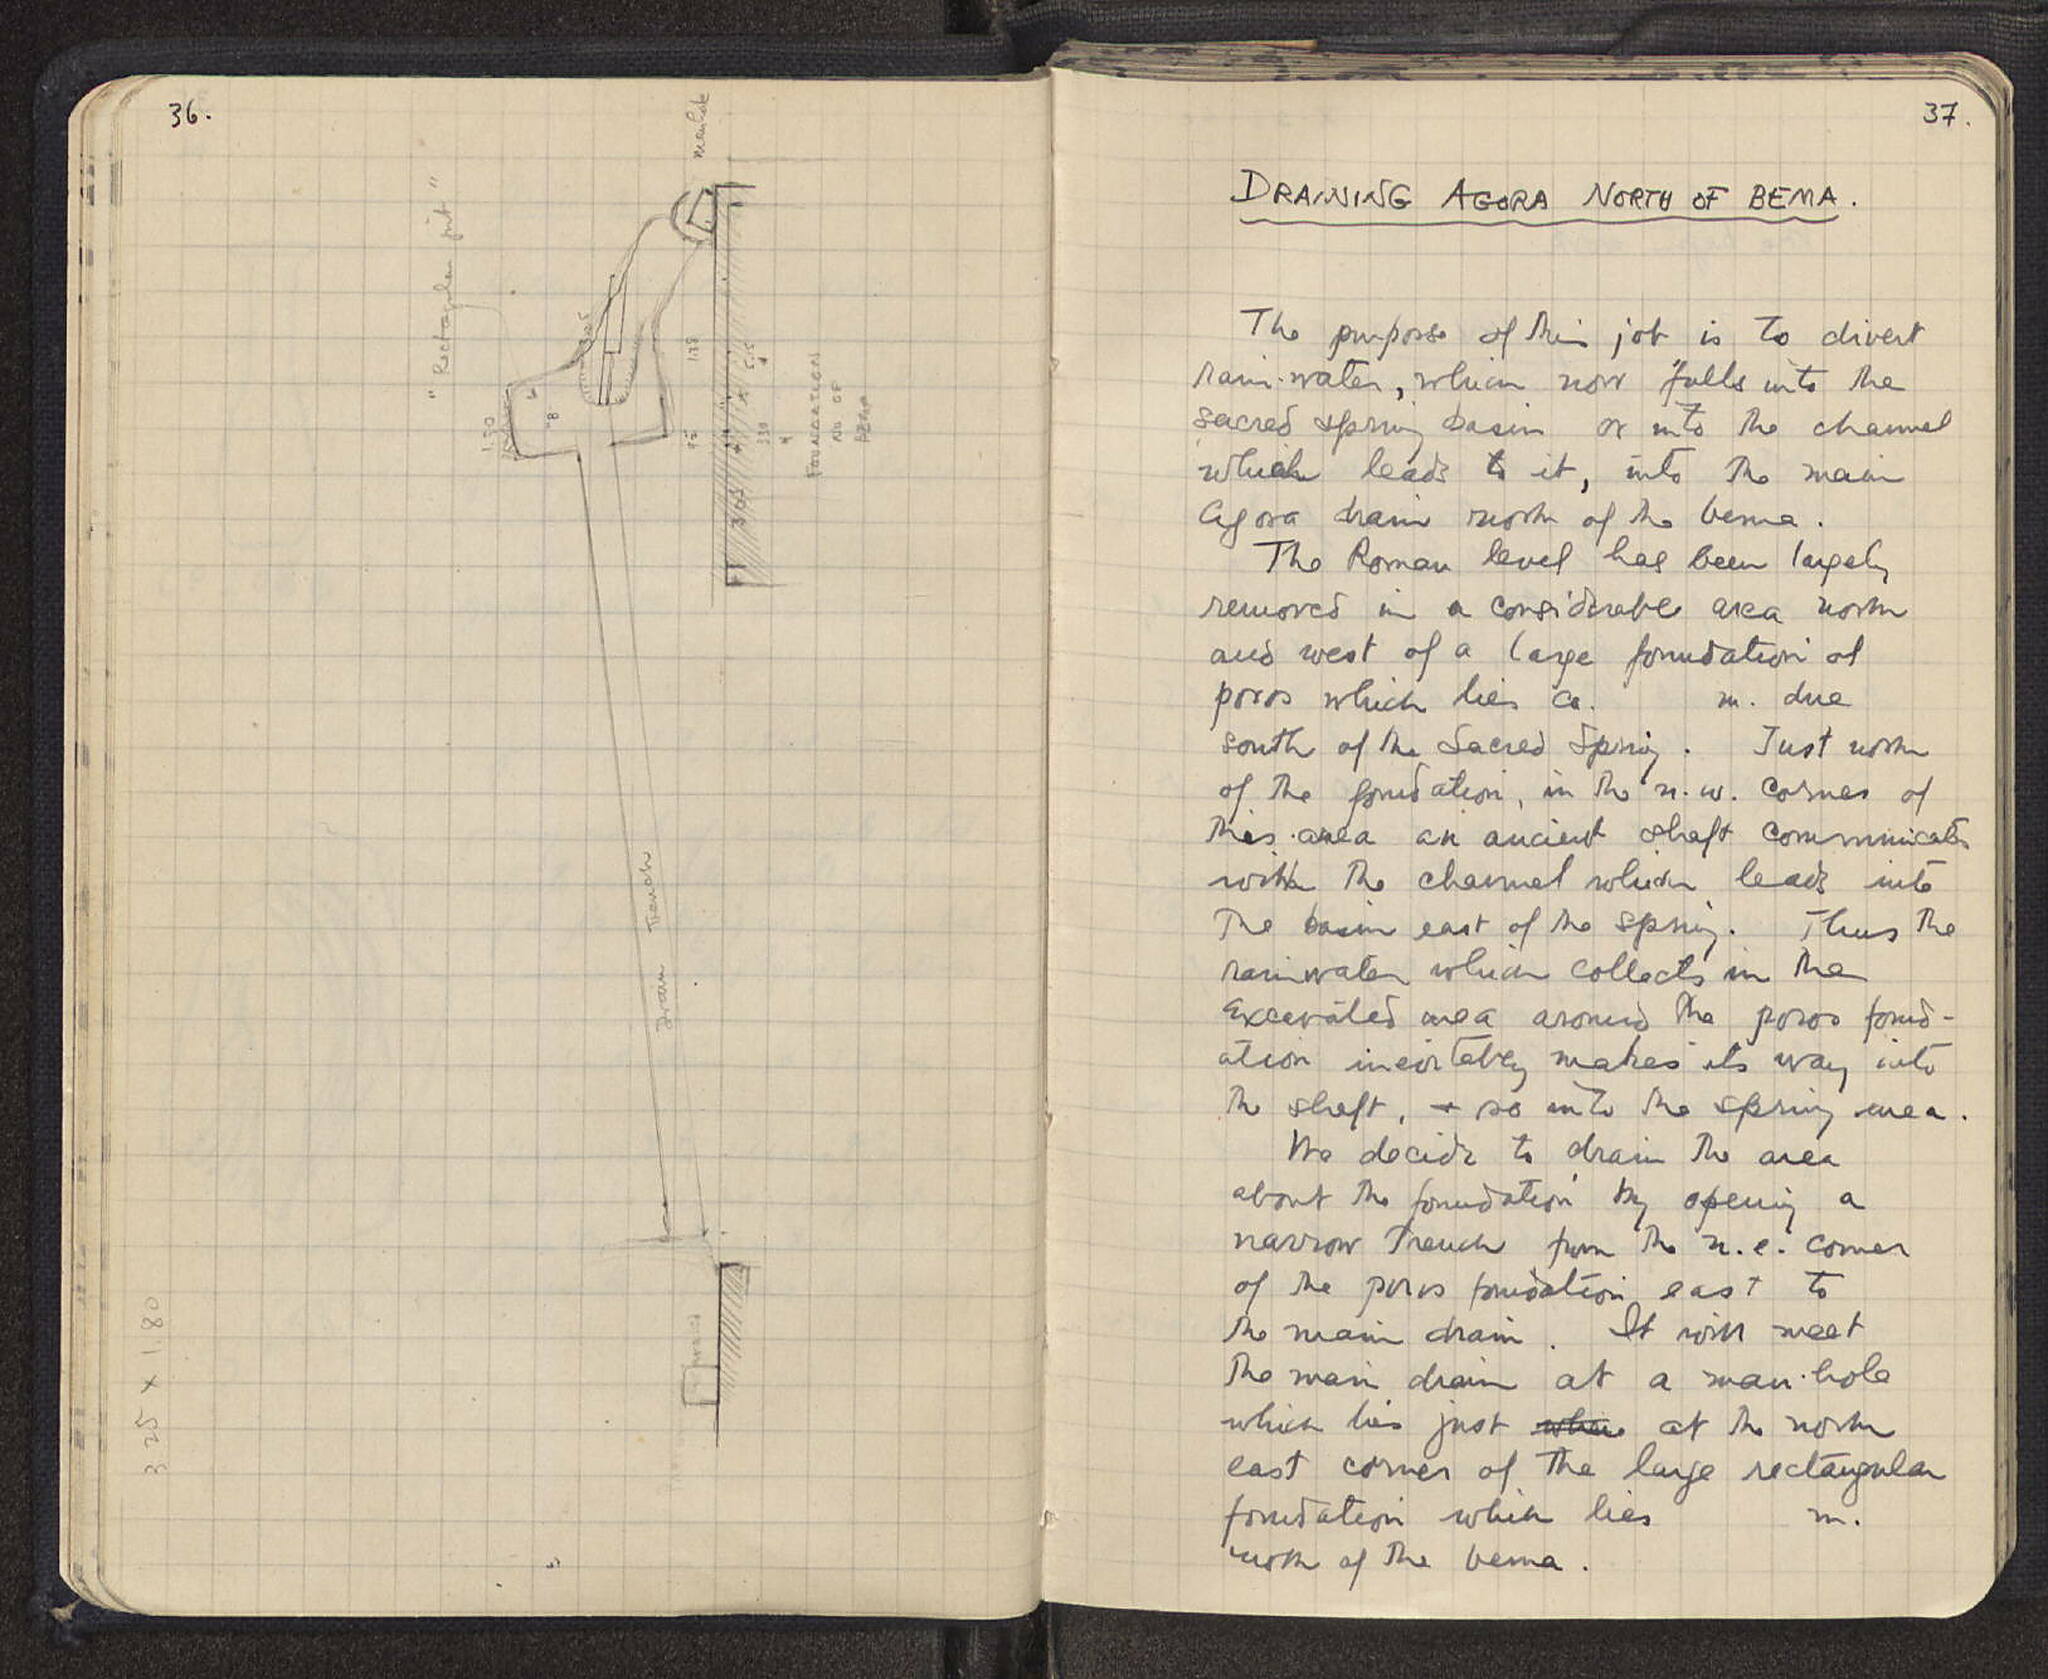 36.
"Rectangular pit"
manhole
1.30
FOUNDATION
NO OF
BEMA
Drain Trench
poros
3.25 x 1.80
37.
DRAINING AGORA NORTH OF BEMA.
The purpose of this job is to divert
rain-water, which now falls into the
sacred spring basin or into the channel
which leads to it, into the main
Agora drain north of the bema.
The Roman level has been largely
removed in a considerable area north
and west of a large foundation of
poros which lies ca. m. due
south of the Sacred Spring. Just north
of the foundation, in the n.w. corner of
this area an ancient shaft communicates
with the channel which leads into
the basin east of the spring. Thus the
rainwater which collects in the
excavated area around the poros found-
ation inevitably makes its way into
the shaft, + so into the spring area.
We decide to drain the area
about the foundation by opening a
narrow trench from the n.e. corner
of the poros foundation east to
the main drain. It will meet
the main drain at a man-hole
which lies just at the north
east corner of the large rectangular
foundation which lies m.
north of the bema.